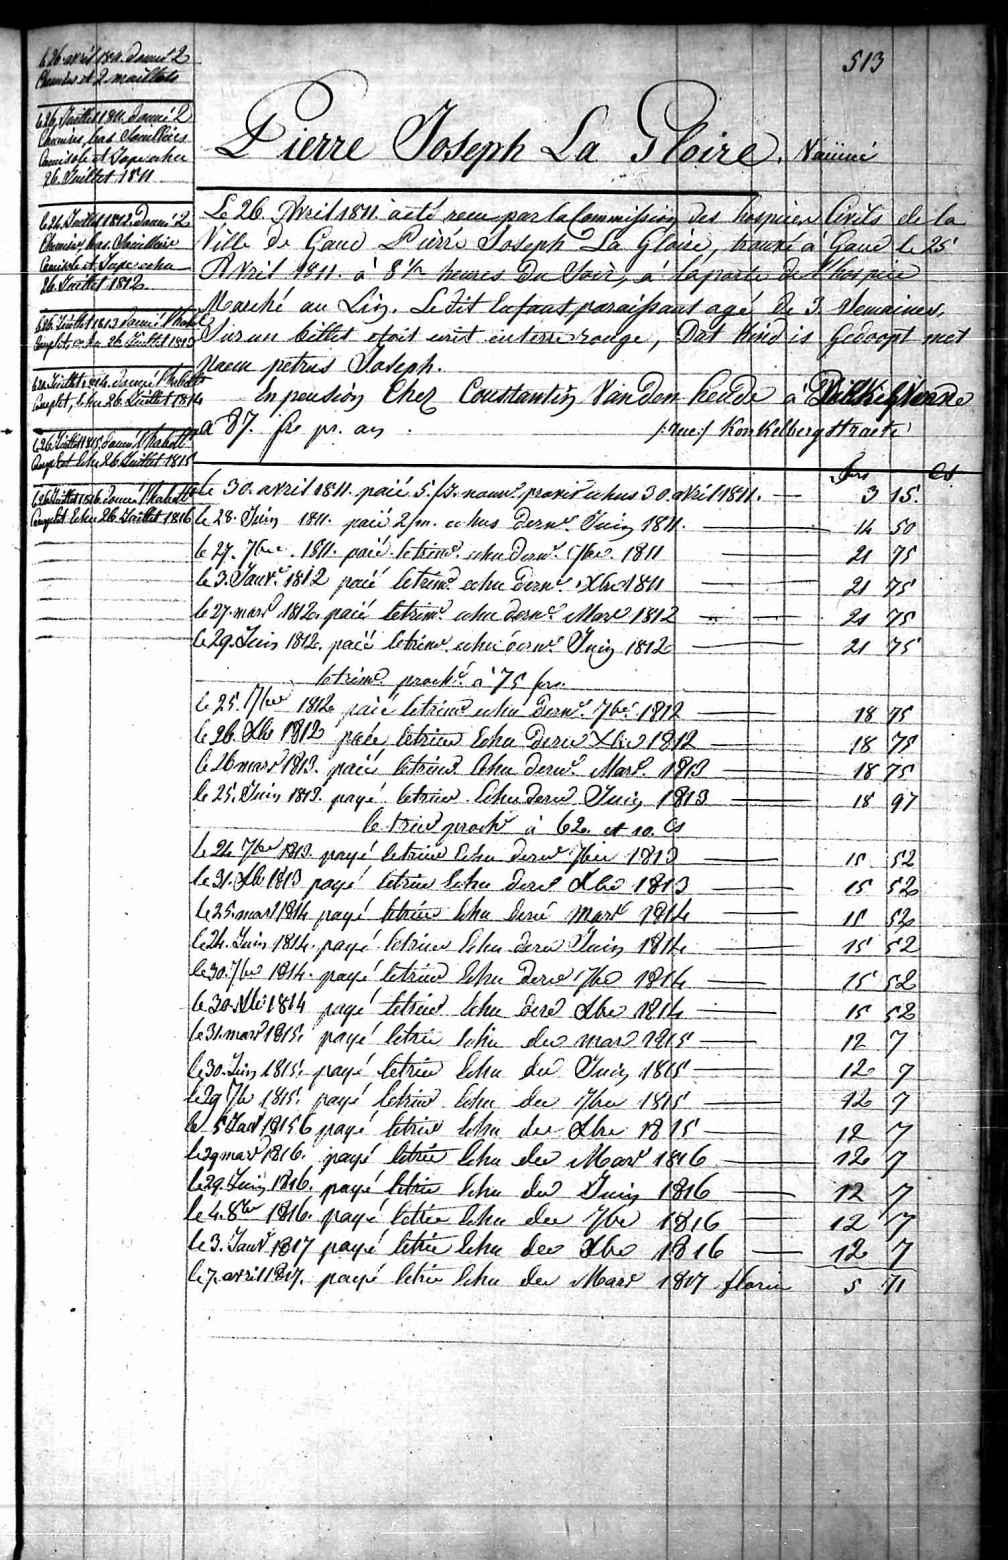 513
le 26 avril 1811. donné 2
Chemises et 2 maillots
le 26 Juillet 1811. donné 2
Chemises, bas Souilliers
Camisole et Jupe echu
26. Juillet 1811
le 26 Juillet 1812. donné 2
Chemises, bas. Souillier
Camisole et Jupe echu
26 Juillet 1812
le 26. Juillet 1813 donné l'habil
Complet echu 26. Juillet 1813
donné l'habillt
Complet, echu 26. Juillet 1814
le 26. Juillet 1815. donné l'habillt
Complet echu 26. Juillet 1815
le 26 Juillet 1816. donné l'habillt
Complet echu 26. Juillet 1816
Pierre Joseph La Gloire. Vaciné
Le 26. Avril 1811. a été recu par la Commission des hospices Civils de la
Ville de Gand Pierre Joseph La Gloire, trouvé a Gand le 25
Avril 1811. à 8 1/2 heures du Soir, à la porte de l'hospice
Marché au Lin. Le dit Enfant paraissant agé de 3. Semaines,
Sur un billet etoit ecrit en terre rouge, Dat Kind is Gedoopt met
naem petrus Joseph.
En pension Chez Constantin Van den hedde à
a 87. frs pr. an. /:rue:/ Konkelbergstraete
frs Cs
le 30. avril 1811. paié 5. echu 30. avril 1811. — 3 15.
le 28. Juin 1811. paié 2/m. echus dernr. Juin 1811. — 14 50
le 27. 7bre. 1811. paié le trimr. echu dernr. 7bre. 1811 — 21 75
le 3. Janvr. 1812 paié le trimr. echu dernr. Xbre 1811 — 21 75
le 27. mars 1812. paié le trimr. echu dernr. Mars 1812 — 21 75
le 29. Juin 1812. paié le trimr. echu dernr. Juin 1812 — 21 75
le trimr. procht. à 75 frs.
le 25. 7bre 1812 paié le trimr. echu dernr. 7bre. 1812 — 18 75
le 26. Xbre 1812 paié le trimr Echu dernr Xbre 1812 — 18 75
le 26 mars 1813. paié le trimr. Echu dernr. Mars. 1813 — 18 75
le 25. Juin 1813. payé le trimr Echu dernr Juin 1813 — 18 97
le trimr procht à 62. et 10. Cs
le 24 7bre 1813. payé le trimr Echu dernr 7bre 1813 — 15 52
le 31. Xbre 1813 payé le trimr Echu dernr Xbre 1813 — 15 52
le 25. mars 1814 payé le trimr Echu dernr mars 1814 — 15 52
le 24. Juin 1814. payé le trimr Echu dernr Juin 1814 — 15 52
le 30. 7bre 1814. payé le trimr Echu dernr 7bre 1814 — 15 52
le 30. Xbre 1814 payé le trimr Echu dernr Xbre 1814 — 15 52
le 31. mars 1815. payé le trim Echu der mars 1815 — 12 7
le 30. Juin 1815. payé le trim Echu der Juin 1815 — 12 7
le 29 7bre 1815. payé le trim Echu der 7bre 1815 — 12 7
le 5 Janv 18156 payé le trim Echu der Xbre 1815 — 12 7
le 29 mars 1816. payé le trim Echu der Mars 1816 — 12 7
le 29. Juin 1816. payé le trim Echu der Juin 1816 — 12 7
le 4. 8bre 1816. payé le trim Echu der 7bre 1816 — 12 7
le 3. Janvr 1817 payé le trim Echu der Xbre 1816 — 12 7
le 7. avril 1817. payé le trim Echu der Mars 1817 florin 5 71